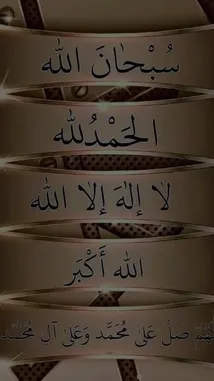 سُبْحَانَ الله
الحَمْدُلله
لا إلهَ إلا الله
الله أَكْبَر
صَلِّ عَلىٰ مُحَمَّد وَعَلىٰ آلِ مُحَمَّد